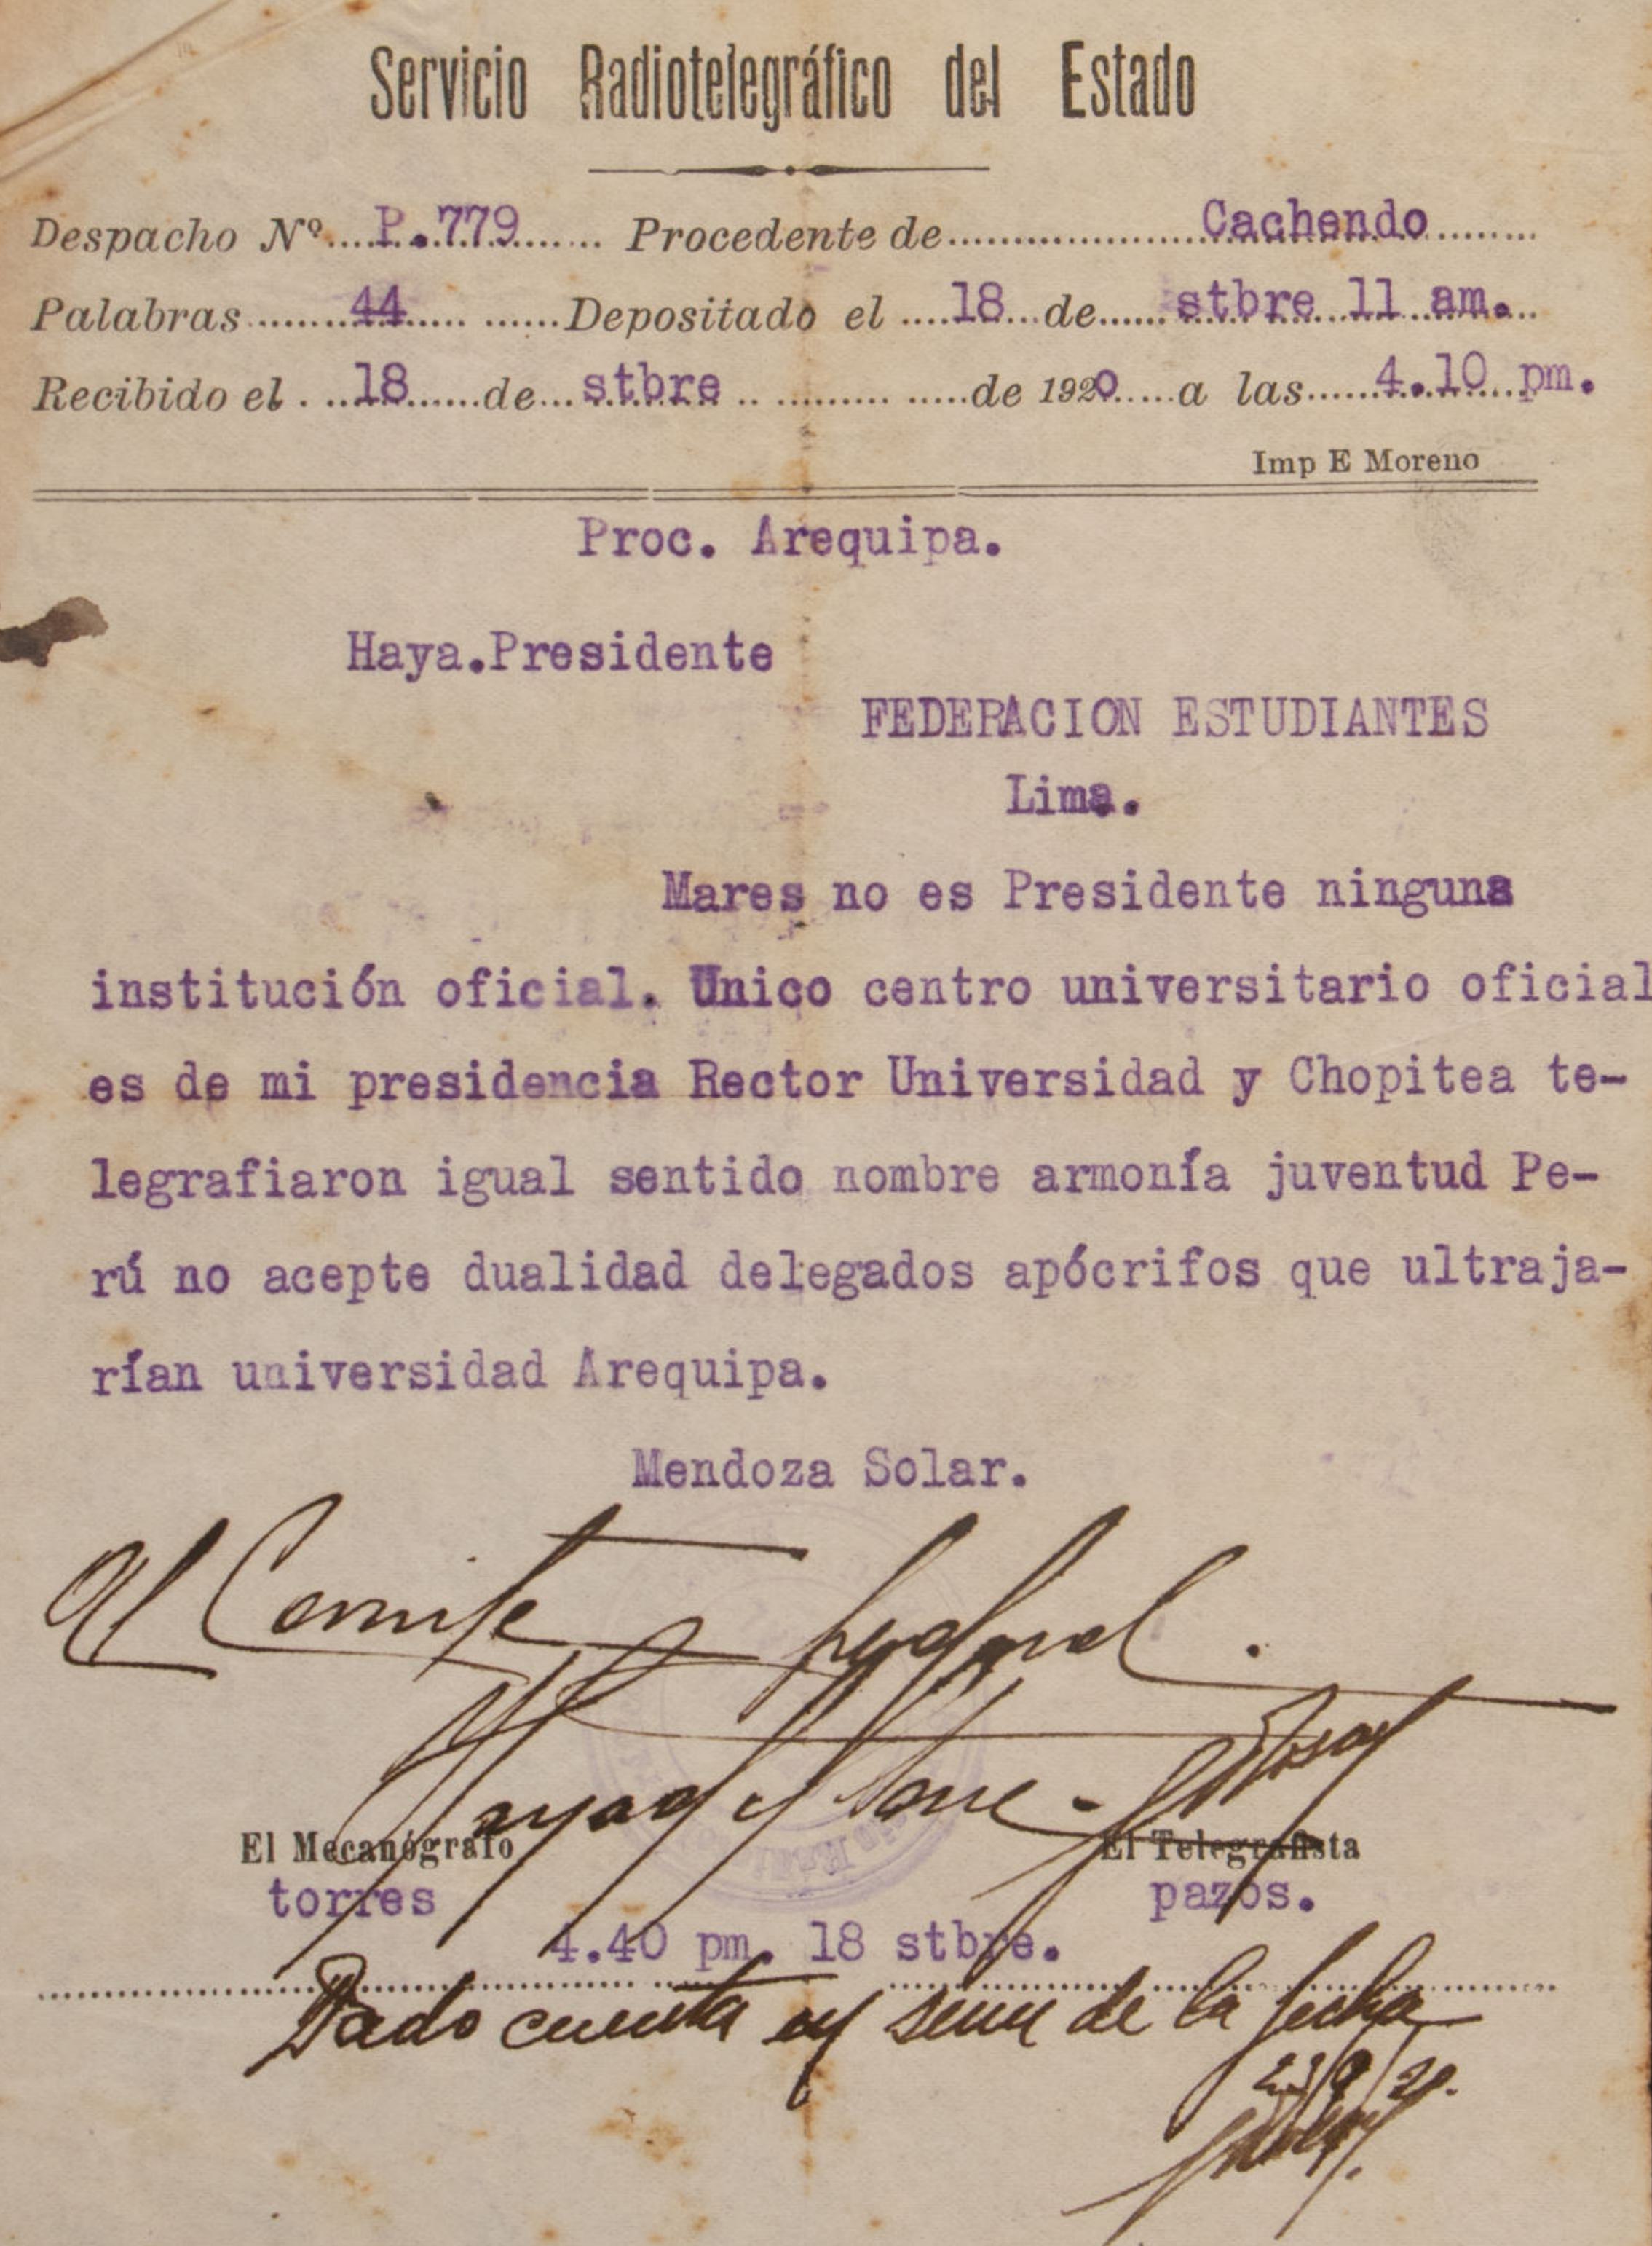 Servicio Radiotelegráfico del Estado
Despacho Nº P.779 Procedente de Cachendo
Palabras 44 Depositado el 18 de stbre 11 am.
Recibido el 18 de stbre de 1920 a las 4.10 pm.
Imp E Moreno
Proc. Arequipa.
Haya.Presidente
FEDERACION ESTUDIANTES
Lima.
Mares no es Presidente ninguna
institución oficial. Unico centro universitario oficial
es de mi presidencia Rector Universidad y Chopitea te-
legrafiaron igual sentido nombre armonía juventud Pe-
rú no acepte dualidad delegados apócrifos que ultraja-
rían universidad Arequipa.
Mendoza Solar.
Al Comite federal.
Haya de la Torre
El Mecanógrafo El Telegrafista
torres pazos.
4.40 pm. 18 stbre.
Dado cuenta en de la fecha
23/9/20.